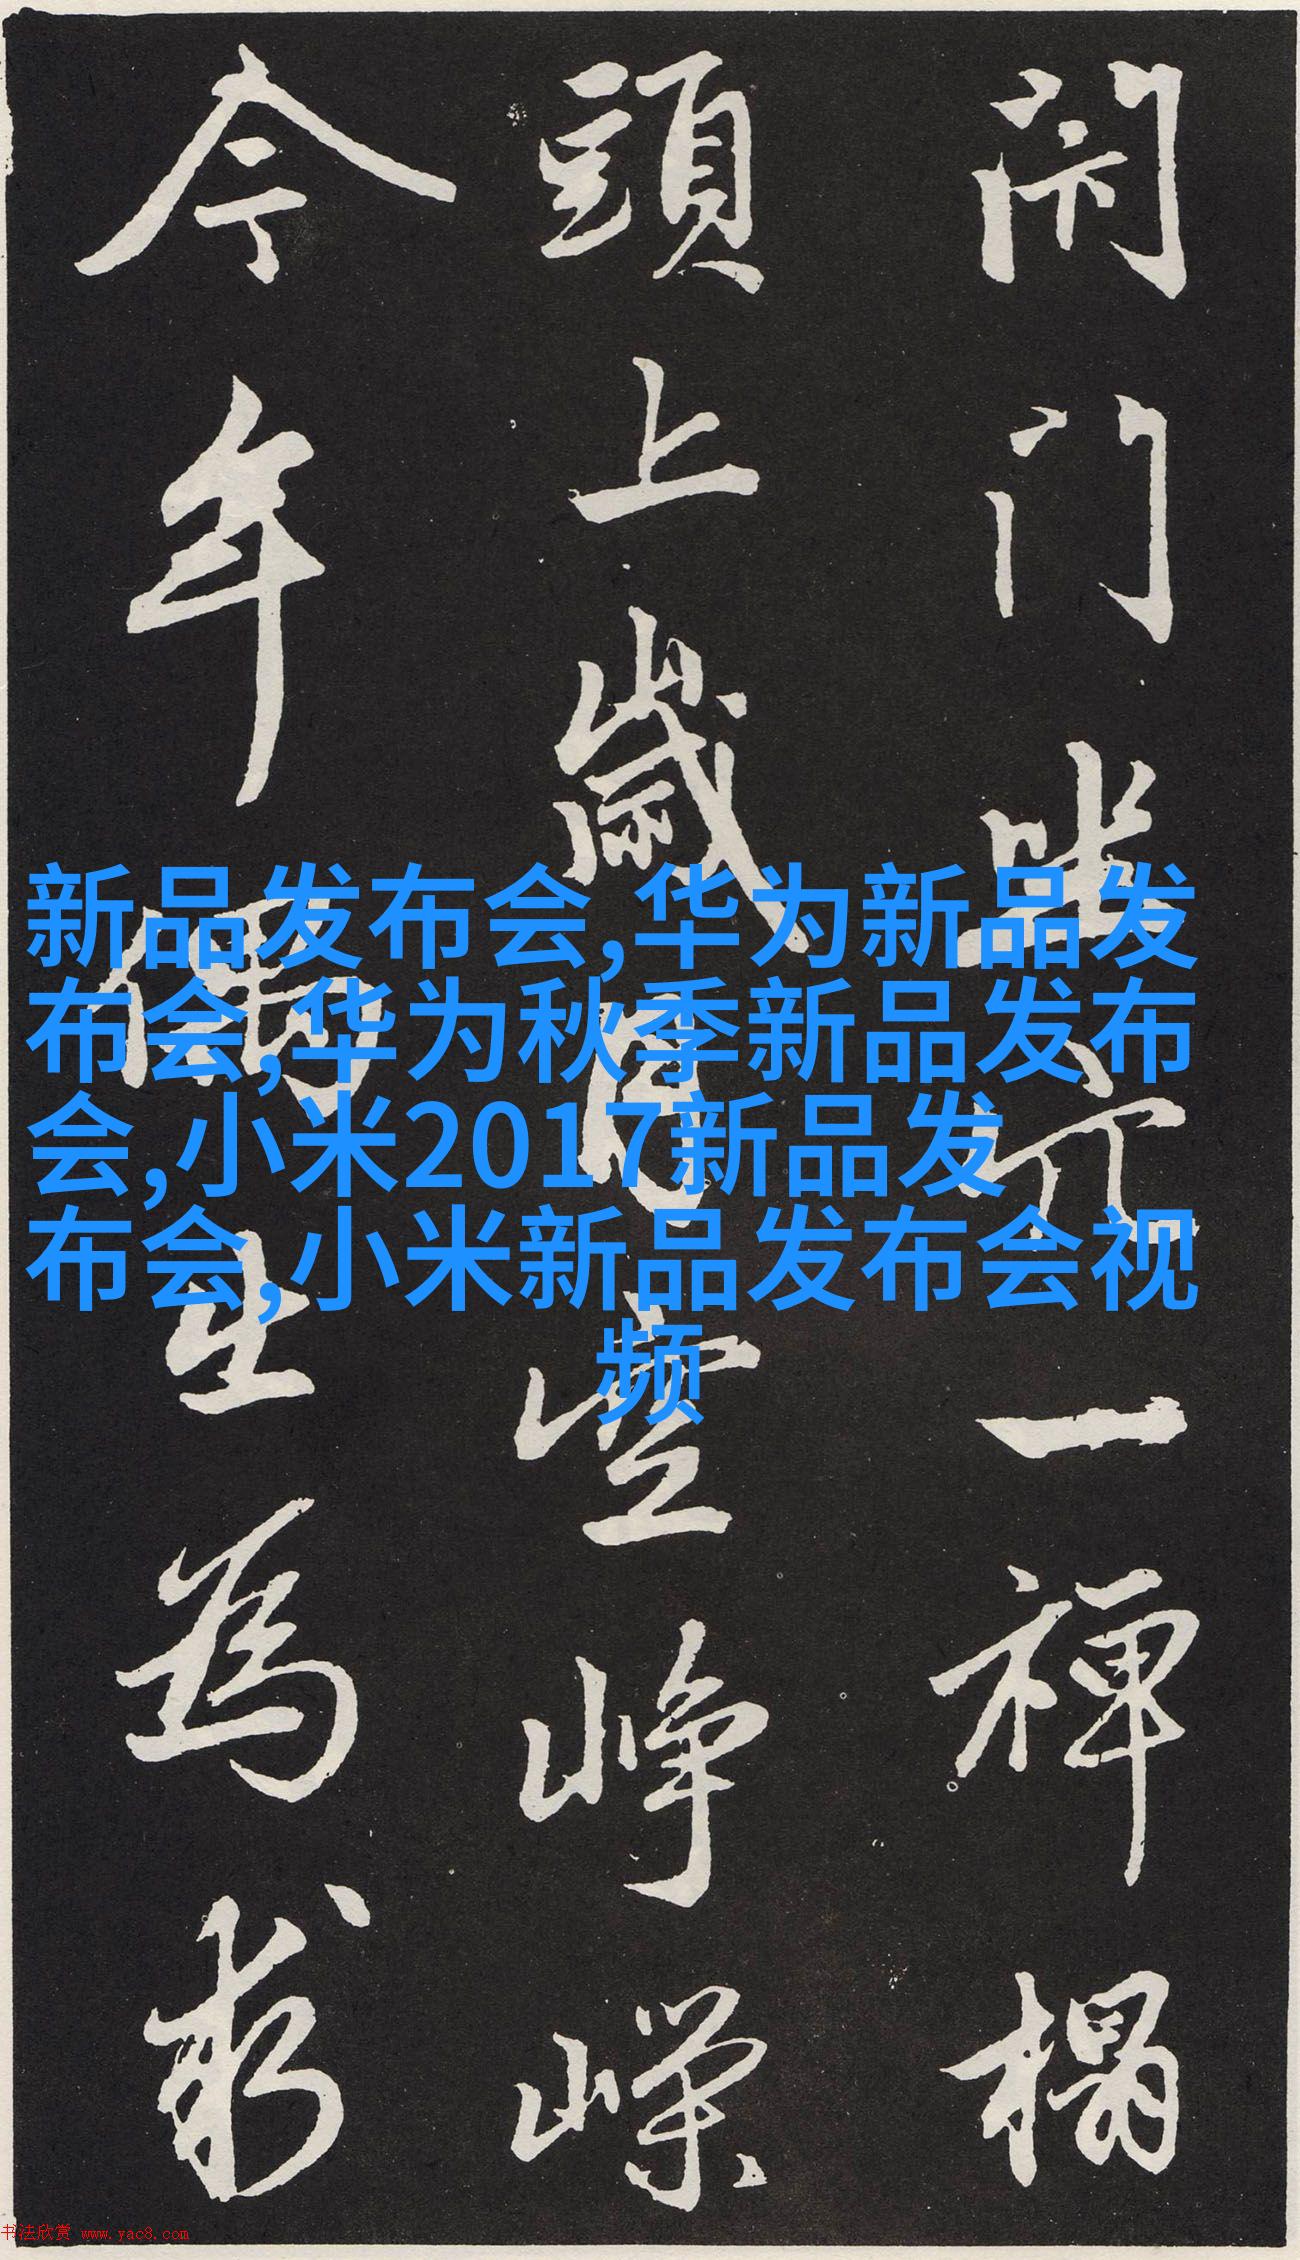 闭门坐穴一禅榻
頭上歲月空崢嶸
今年偶出為求
新品发布会,华为新品发
布会,华为秋季新品发布
会,小米2017新品发
布会,小米新品发布会视
频
书法欣赏 www.yac8.com